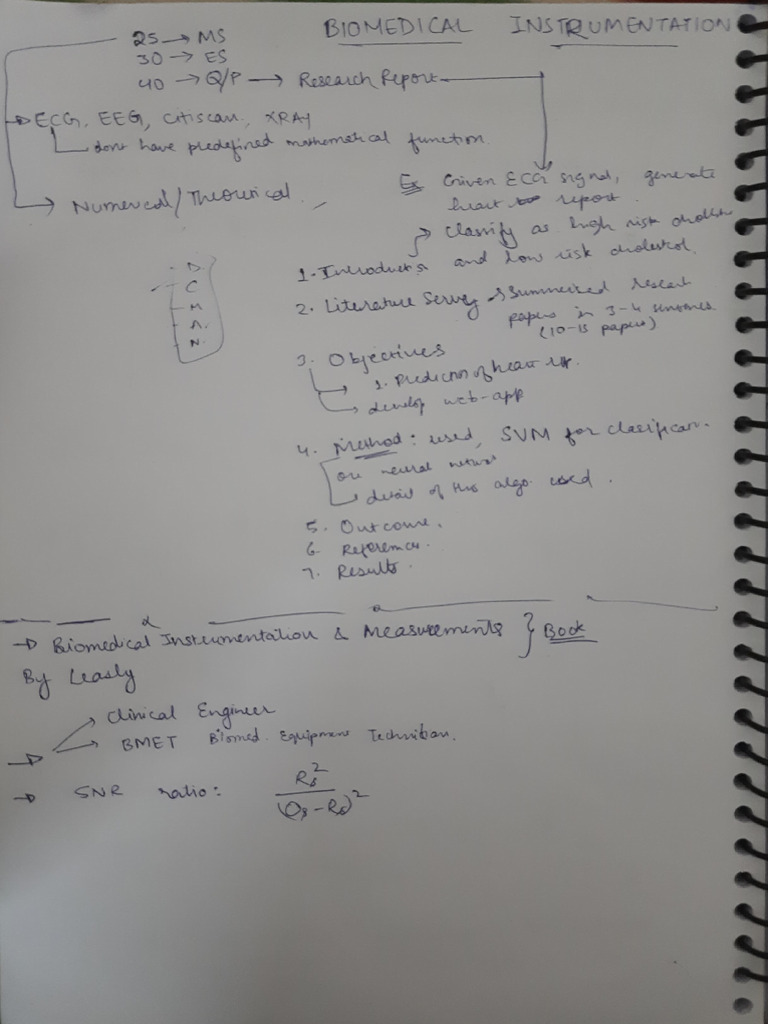 BIOMEDICAL INSTRUMENTATION
25 → MS
30 → ES
40 → Q/P → Research Report
→ ECG, EEG, Citiscan, XRAY
dont have predefined mathematical function.
→ Numerical/Theoretical
Ex Given ECG signal, generate
heart report.
→ Classify as high risk
and low risk cholestrol.
D
C
M
A.
N.
1. Introduction
2. Literature Servey → Summerized
papers in 3-4 sentences
(10-15 papers)
3. Objectives
→ 1. Prediction of heart
→ develop web-app
4. Method: used, SVM for
or neural
→ detail of the algo. used.
5. Outcome.
6. References.
7. Results.
→ Biomedical Instrumentation & Measurements } Book
By Leasly
→ Clinical Engineer
→ BMET Biomed. Equipment Technitian.
→ SNR ratio: Rs² / (Os-Rs)²